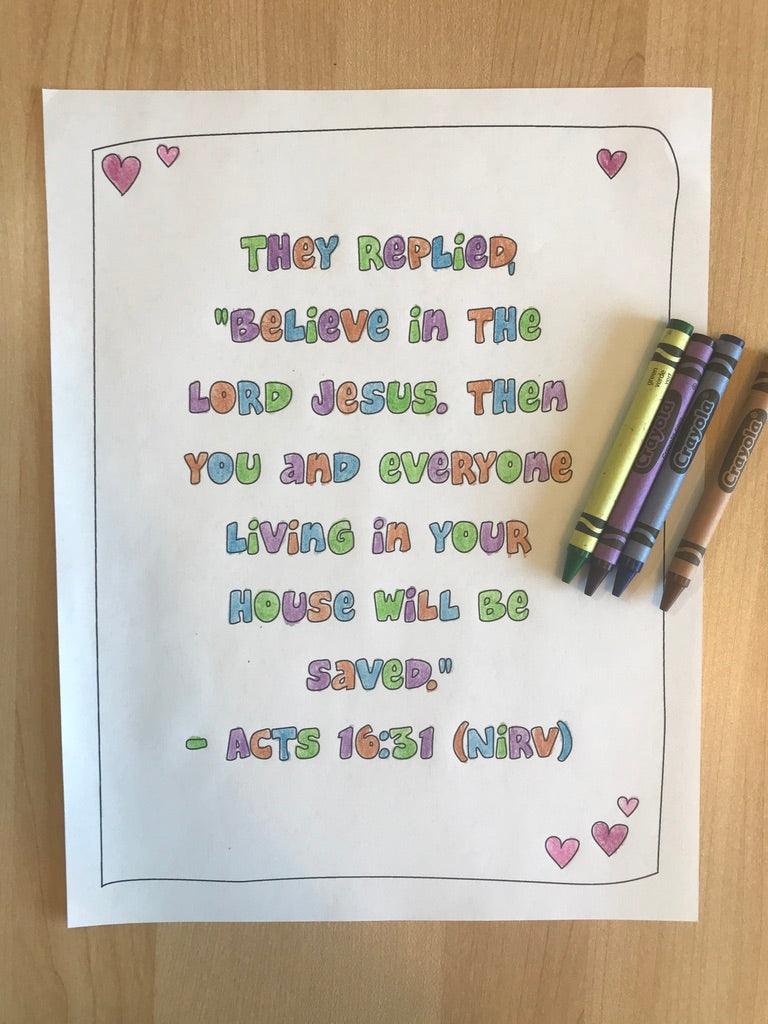 They Replied,
"Believe in the
Lord Jesus. Then
you and everyone
living in your
house will be
saved."
- Acts 16:31 (NiRV)
green
verde
Crayola
Crayola
Crayola